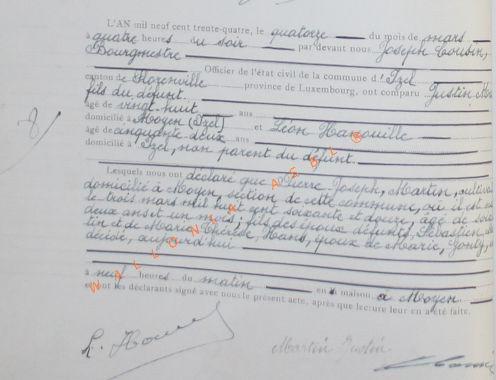 L'AN mil neuf cent trente-quatre, le quatorze du mois de mars
à quatre heures du soir par devant nous Joseph Cousin,
Bourgmestre
Officier de l'état civil de la commune d'Izel
canton de Florenville province de Luxembourg, ont comparu Justin
fils du défunt
âgé de vingt-huit ans
domicilié à Moyen (Izel) et Léon
âgé de cinquante deux ans
domicilié à Izel, non parent du défunt.
Lesquels nous ont déclaré que Pierre, Joseph, Martin,
domicilié à Moyen, section de cette commune, où il est
le trois mars mil huit cent soixante et douze, âgé de
deux ans et un mois, fils des époux défunts, Sébastien,
tin et de Marie, Thérèse, Hans, époux de Marie,
décédé, aujourd'hui
à neuf heures du matin en sa maison à Moyen
et ont les déclarants signé avec nous le présent acte, après que lecture leur en a été faite.
Martin Justin
WALLONIA ASBL ©